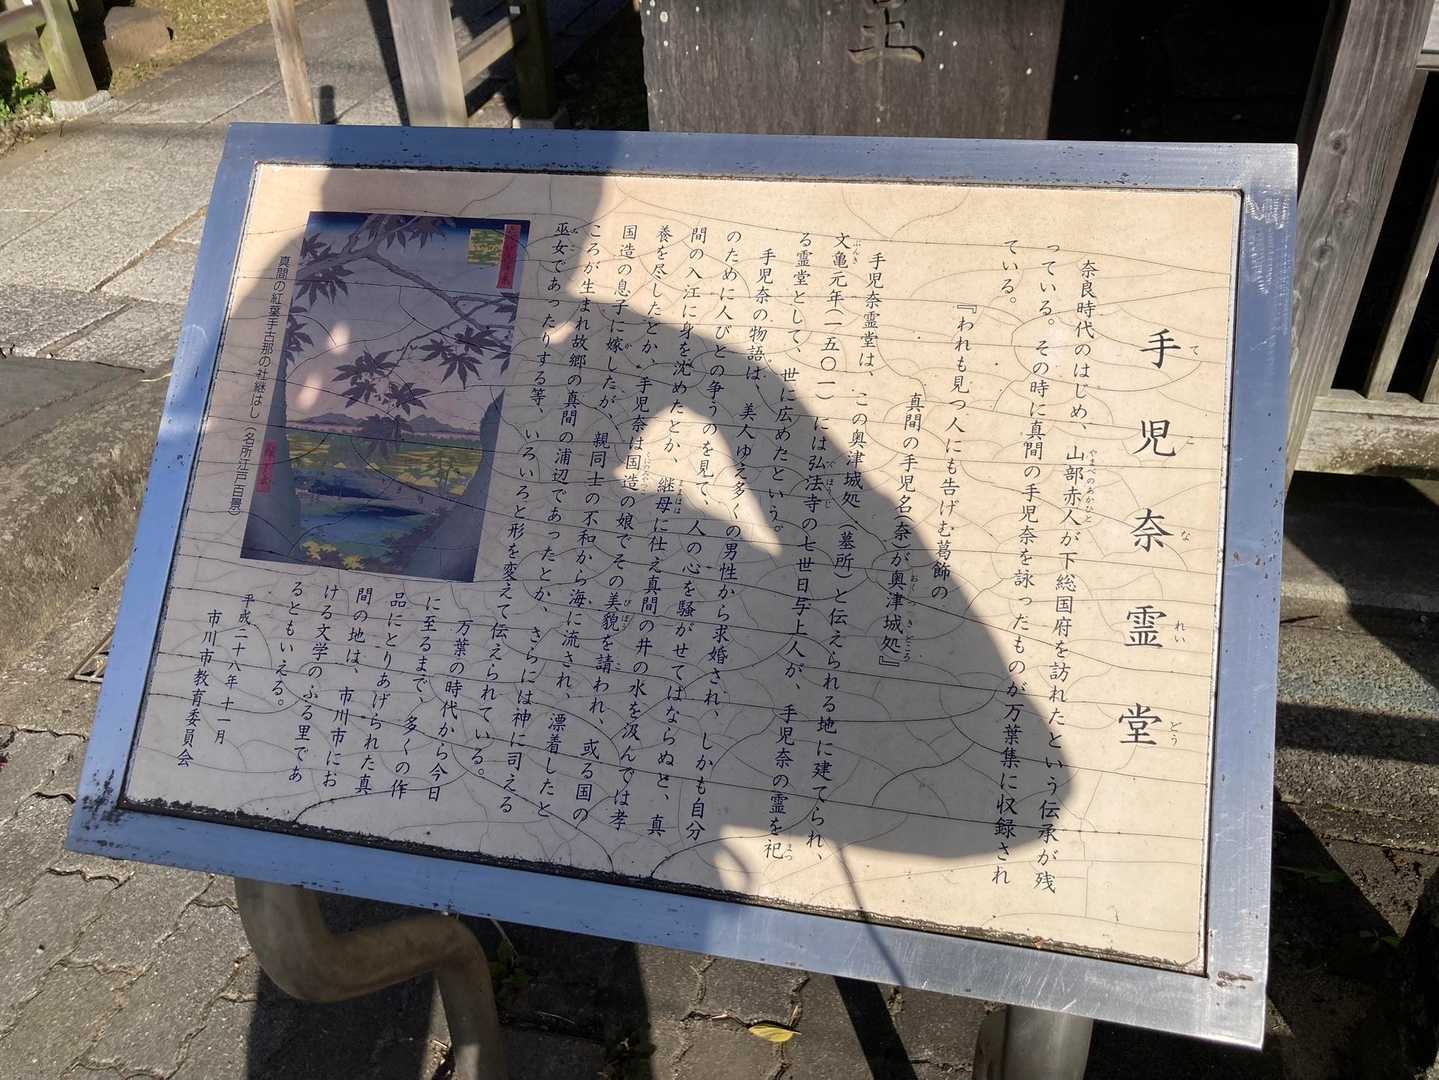 手児奈霊堂
てこなれいどう
奈良時代のはじめ、山部赤人が下総国府を訪れたという伝承が残
やまべのあかひと
っている。その時に真間の手児奈を詠ったものが万葉集に収録され
ている。
『われも見つ人にも告げむ葛飾の
真間の手児名(奈)が奥津城処』
おくつきどころ
手児奈霊堂は、この奥津城処(墓所)と伝えられる地に建てられ、
文亀元年(一五〇一)には弘法寺の七世日与上人が、手児奈の霊を祀
ぶんき
ぐぼうじ
まつ
る霊堂として、世に広めたという。
手児奈の物語は、美人ゆえ多くの男性から求婚され、しかも自分
のために人びとの争うのを見て、人の心を騒がせてはならぬと、真
間の入江に身を沈めたとか、継母に仕え真間の井の水を汲んでは孝
ままはは
養を尽したとか、手児奈は国造の娘でその美貌を請われ、或る国の
びぼう
国造の息子に嫁したが、親同士の不和から海に流され、漂着したと
ころが生まれ故郷の真間の浦辺であったとか、さらには神に司える
巫女であったりする等、いろいろと形を変えて伝えられている。
みこ
万葉の時代から今日
に至るまで、多くの作
品にとりあげられた真
間の地は、市川市にお
ける文学のふる里であ
るともいえる。
平成二十八年十一月
市川市教育委員会
真間の紅葉手古那の社継はし(名所江戸百景)